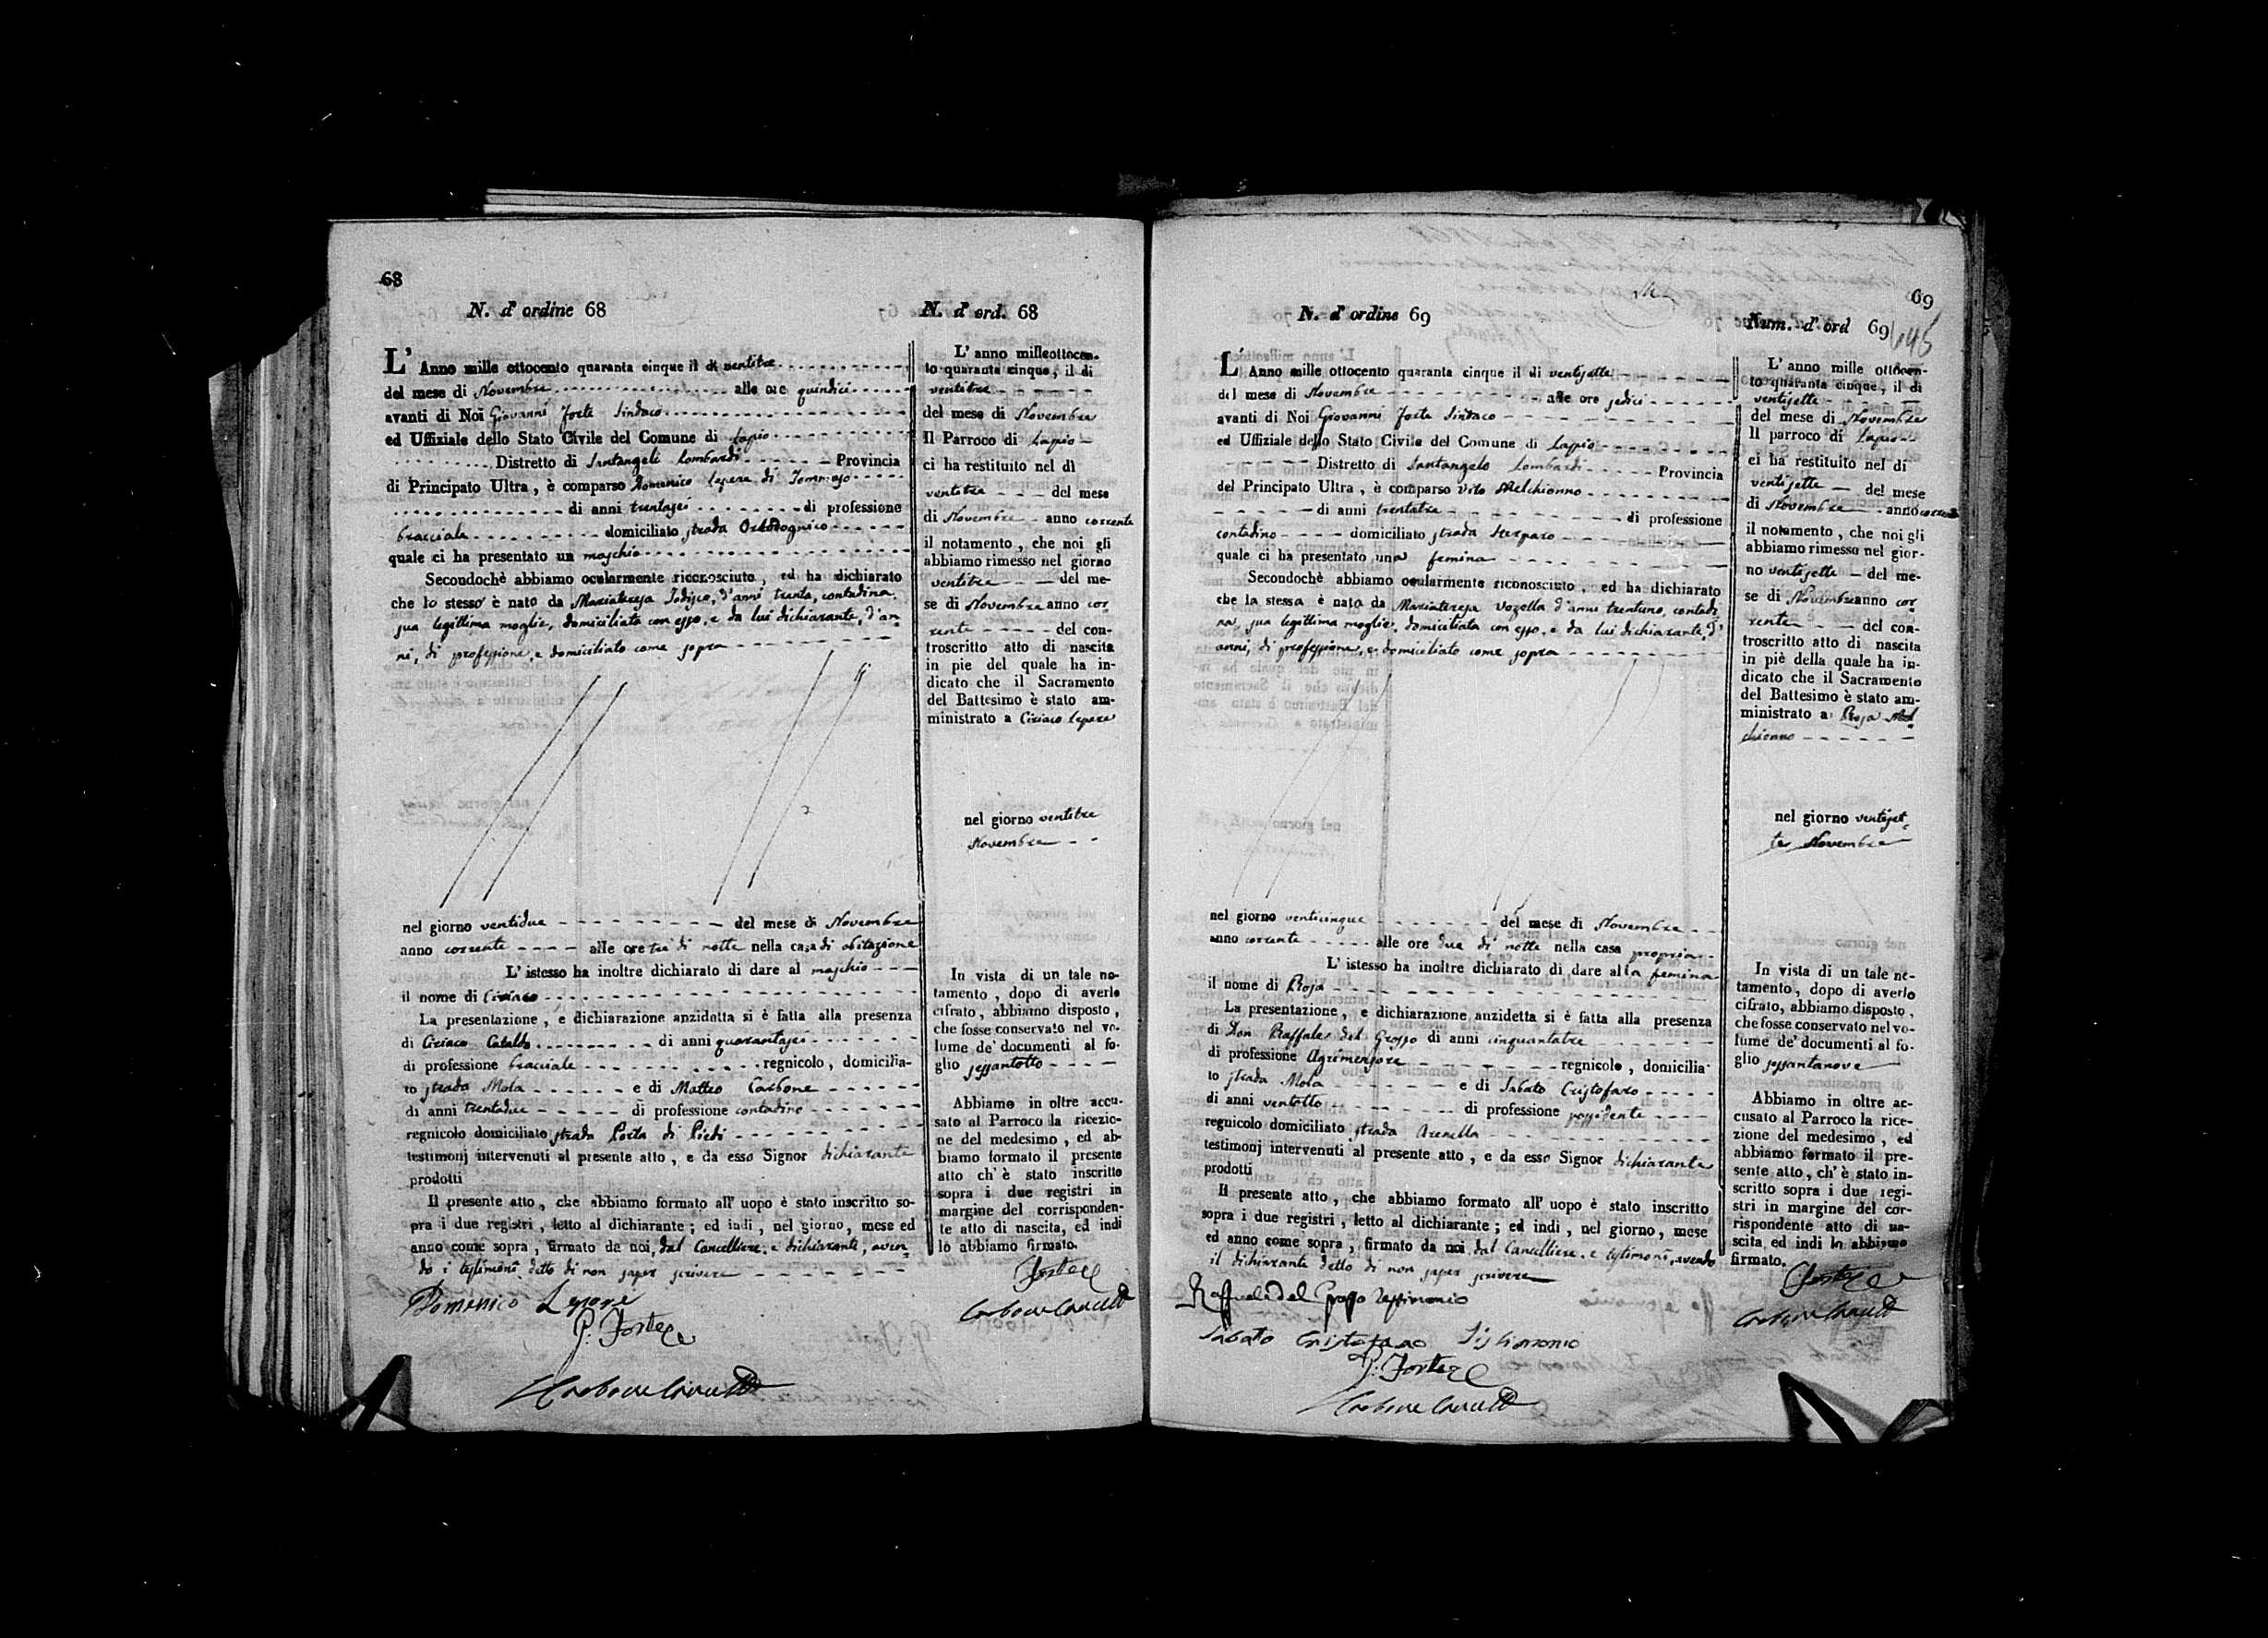 68
N. d' ordine 68
L' Anno mille ottocento quaranta cinque il dì ventitre
del mese di Novembre alle ore quindici
avanti di Noi Giovanni Forte Sindaco
ed Uffiziale dello Stato Civile del Comune di Lapio
Distretto di Santangelo Lombardi Provincia
di Principato Ultra, è comparso Domenico Lepore di Tommaso
di anni trentasei di professione
bracciale domiciliato strada
quale ci ha presentato un maschio
Secondochè abbiamo ocularmente riconosciuto, ed ha dichiarato
che lo stesso è nato da Mariateresa Jodisce, d'anni trenta, contadina
sua legittima moglie, domiciliata con esso, e da lui dichiarante, d'an-
ni, di professione, e domiciliato come sopra
nel giorno ventidue del mese di Novembre
anno corrente alle ore tre di notte nella casa di abitazione
L' istesso ha inoltre dichiarato di dare al maschio
il nome di Ciriaco
La presentazione, e dichiarazione anzidetta si è fatta alla presenza
di Ciriaco Catallo di anni quarantasei
di professione bracciale regnicolo, domicilia-
to strada Mola e di Matteo Carbone
di anni trentadue di professione contadino
regnicolo domiciliato strada Porta di Piedi
testimonj intervenuti al presente atto, e da esso Signor dichiarante
prodotti
Il presente atto, che abbiamo formato all' uopo è stato inscritto so-
pra i due registri, letto al dichiarante; ed indi, nel giorno, mese ed
anno come sopra, firmato da noi, dal Cancelliere, e dichiarante, aven-
do i testimoni detto di non saper scrivere
Domenico Lepore
G. Forte
Carbone
N. d' ord. 68
L' anno milleottocen-
to quaranta cinque, il di
ventitre
del mese di Novembre
Il Parroco di Lapio
ci ha restituito nel dì
ventitre del mese
di Novembre anno corrente
il notamento, che noi gli
abbiamo rimesso nel giorno
ventitre del me-
se di Novembre anno cor
rente del con-
troscritto atto di nascita
in piè del quale ha in-
dicato che il Sacramento
del Battesimo è stato am-
ministrato a Ciriaco Lepore
nel giorno ventitre
Novembre
In vista di un tale no-
tamento, dopo di averlo
cifrato, abbiamo disposto,
che fosse conservato nel vo-
lume de' documenti al fo-
glio sessantotto
Abbiamo in oltre accu-
sato al Parroco la ricezio-
ne del medesimo, ed ab-
biamo formato il presente
atto ch' è stato inscritto
sopra i due registri in
margine del corrisponden-
te atto di nascita, ed indi
lo abbiamo firmato.
Forte
Carbone
69
N. d' ordine 69
L' Anno mille ottocento quaranta cinque il di ventisette
del mese di Novembre alle ore sedici
avanti di Noi Giovanni Forte Sindaco
ed Uffiziale dello Stato Civile del Comune di Lapio
Distretto di Santangelo Lombardi Provincia
del Principato Ultra, è comparso Vito Melchionno
di anni trentatre di professione
contadino domiciliato strada Serparo
quale ci ha presentato una femina
Secondochè abbiamo ocularmente riconosciuto, ed ha dichiarato
che la stessa è nata da Mariateresa Vozella d'anni trentuno, contadi
na, sua legittima moglie, domiciliata con esso, e da lui dichiarante, d'
anni, di professione, e domiciliato come sopra
nel giorno venticinque del mese di Novembre
anno corrente alle ore due di notte nella casa propria
L' istesso ha inoltre dichiarato di dare alla femina
il nome di Rosa
La presentazione, e dichiarazione anzidetta si è fatta alla presenza
di Don Raffaele del Grosso di anni cinquantatre
di professione Agrimensore regnicolo, domicilia-
to strada Mola e di Sabato Cristofaro
di anni ventotto di professione possidente
regnicolo domiciliato strada Arenella
testimonj intervenuti al presente atto, e da esso Signor dichiarante
prodotti
Il presente atto, che abbiamo formato all' uopo è stato inscritto
sopra i due registri, letto al dichiarante; ed indi, nel giorno, mese
ed anno come sopra, firmato da noi dal Cancelliere, e testimoni, avendo
il dichiarante detto di non saper scrivere
Raffaele del Grosso Testimonio
Sabato Cristofaro Testimonio
G. Forte
Carbone
Num. d' ord 69
145
L' anno mille ottocen-
to quaranta cinque, il di
ventisette
del mese di Novembre
Il parroco di Lapio
ci ha restituito nel di
ventisette del mese
di Novembre anno corrente
il notamento, che noi gli
abbiamo rimesso nel gior-
no ventisette del me-
se di Novembre anno cor
rente del con-
troscritto atto di nascita
in piè della quale ha in-
dicato che il Sacramento
del Battesimo è stato am-
ministrato a Rosa Mel
chionno
nel giorno ventiset-
te Novembre
In vista di un tale no-
tamento, dopo di averlo
cifrato, abbiamo disposto,
che fosse conservato nel vo-
lume de' documenti al fo-
glio sessantanove
Abbiamo in oltre ac-
cusato al Parroco la rice-
zione del medesimo, ed
abbiamo formato il pre-
sente atto, ch' è stato in-
scritto sopra i due regi-
stri in margine del cor-
rispondente atto di na-
scita ed indi lo abbiamo
firmato.
Forte
Carbone